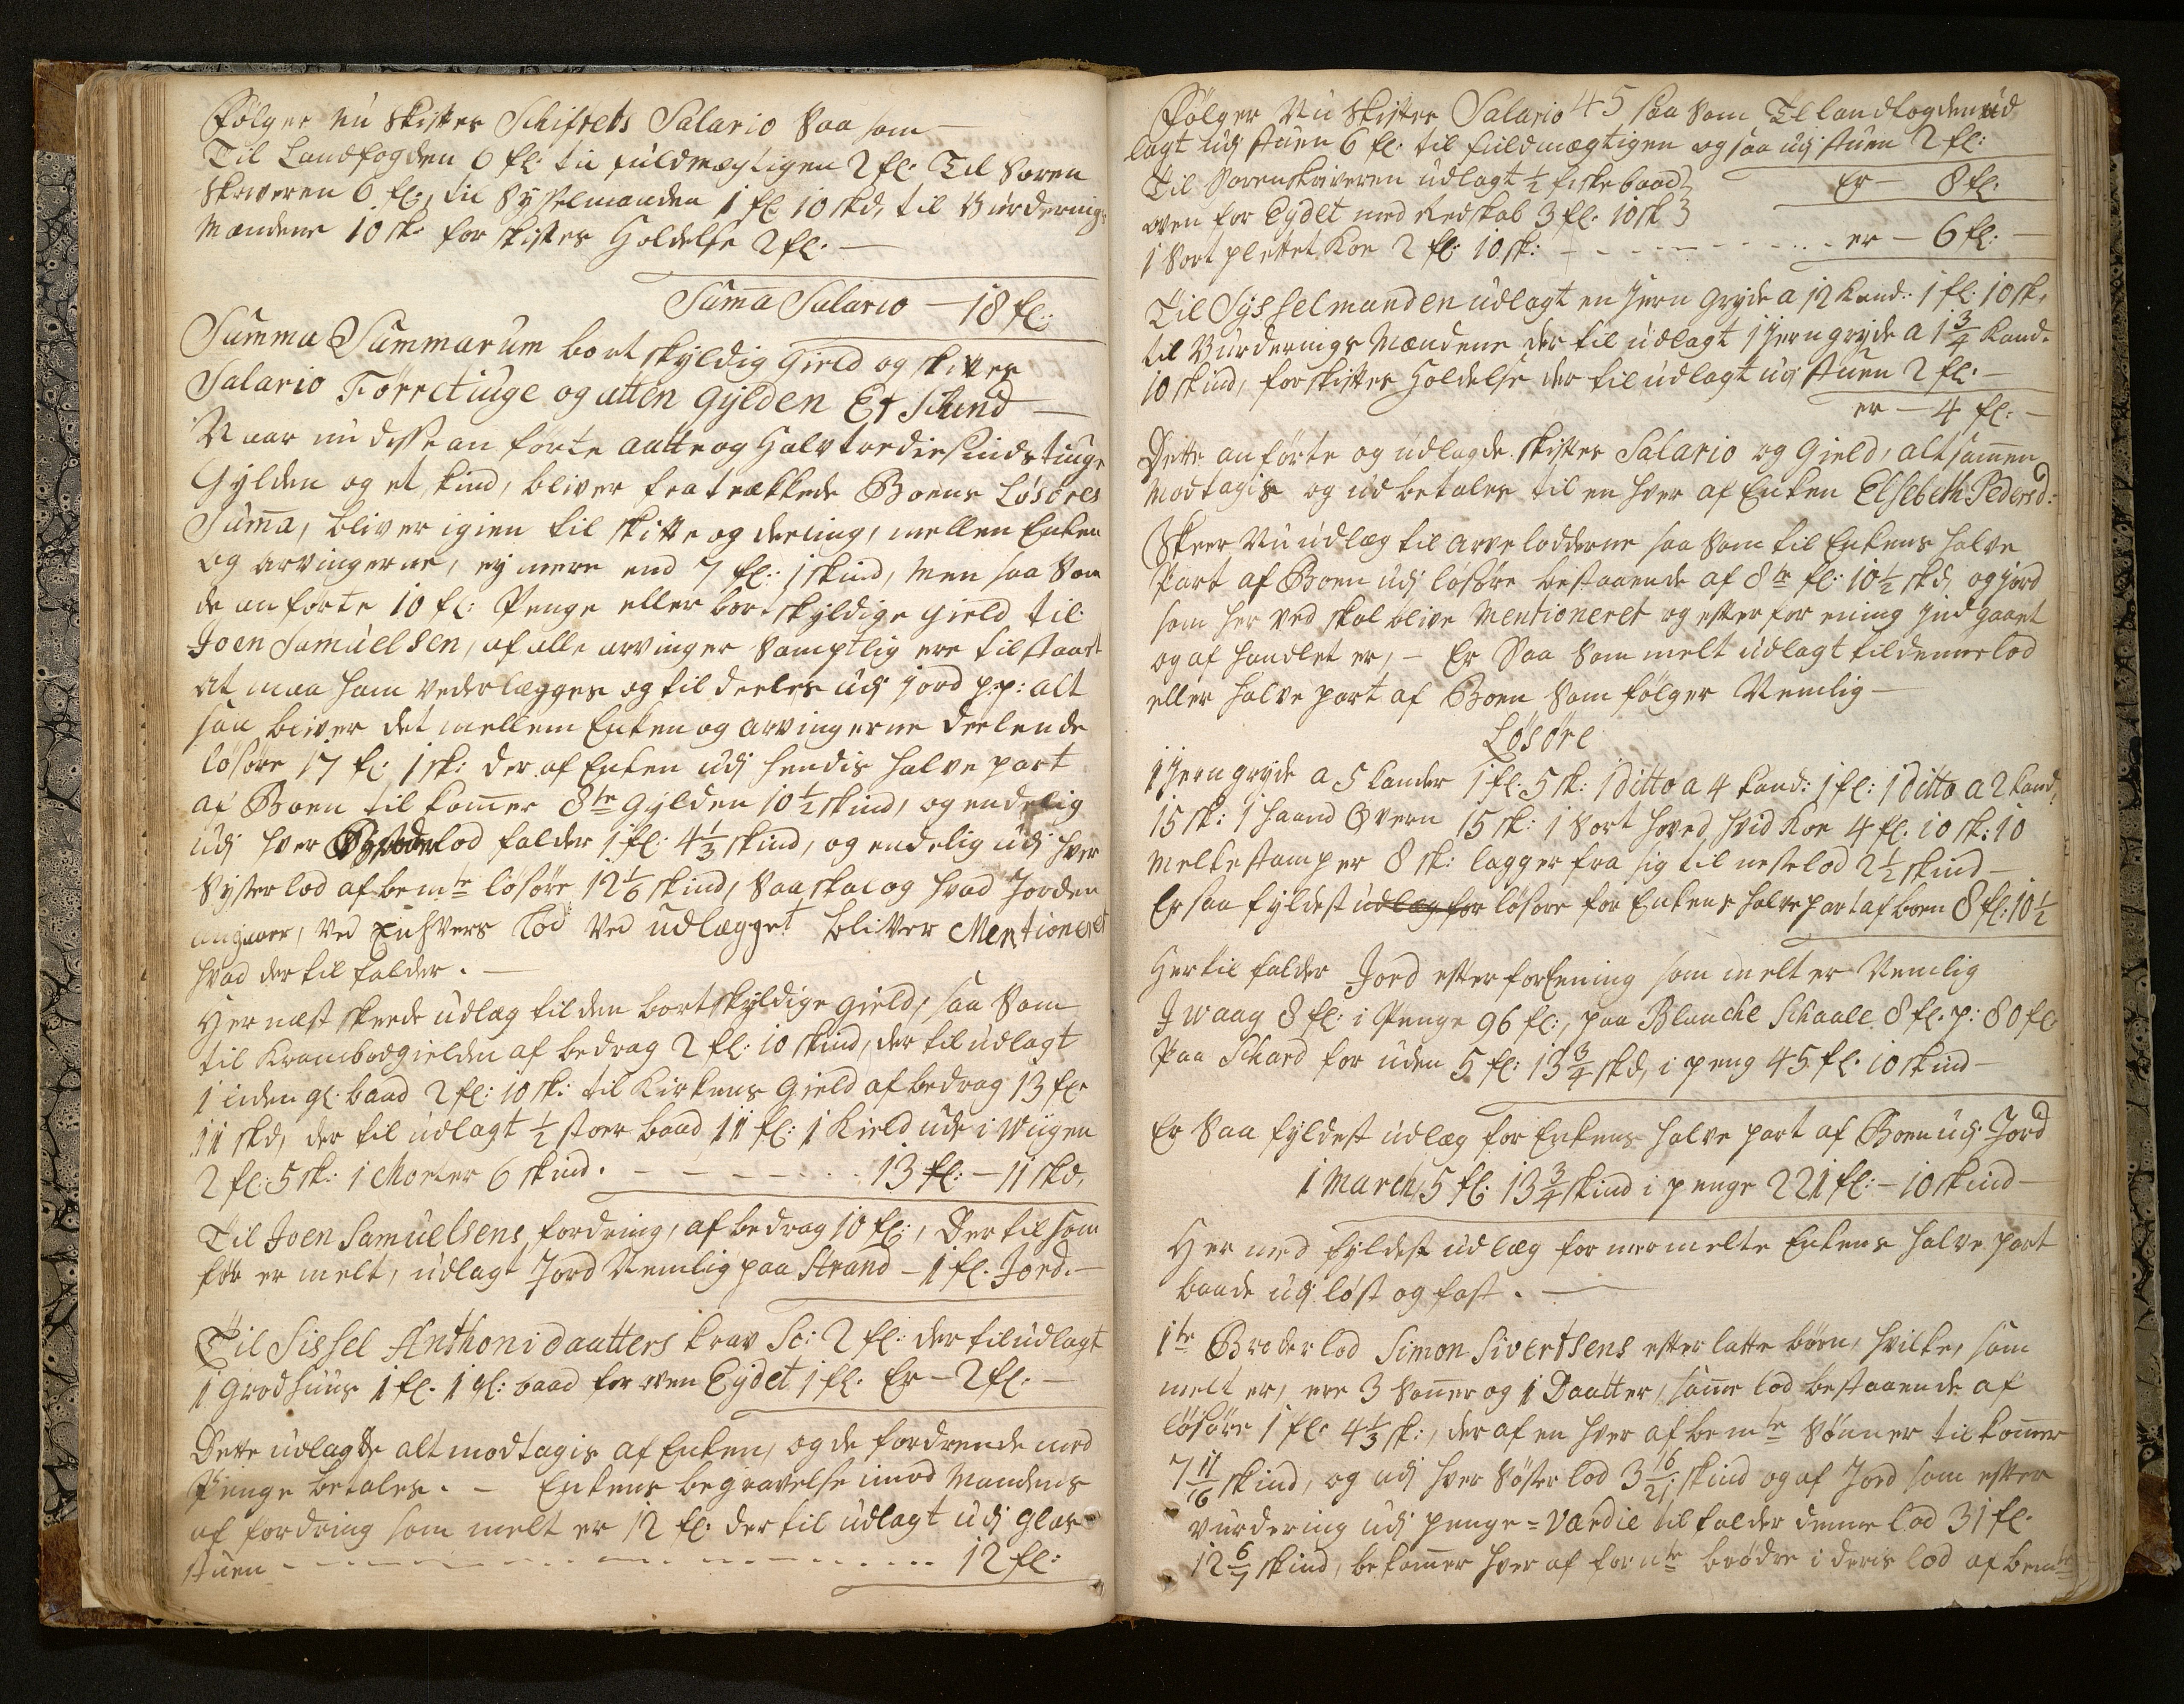 Følger nu Skiftes Schifftets Salario Saa som
Til Landfogden 6 fl: til fuldmægtigen 2 fl: Til Soren
Skriveren 6 fl:, til Sysselmanden 1 fl: 10 skd, til Vurderings
Mændene 10 sk: for skiftes Holdelse 2 fl: —
Suma Salario — 18 fl:
Summa Summarum bort skyldig gield og skiftes
Salario Førretiuge og atten gylden Et Schind —
Naar nu disse an førte aatte og halvtredie Sinds tiuge
Gylden og et skind, bliver fratrækkede Boens Løsøres
Suma, bliver igien til skifte og deeling, mellen Enken
og arvingerne, ey mere end 7 fl: 1 skind, Men saa Som
de anførte 10 fl: Penge eller bortskyldige gield til
Joen Samuelsen, af alle arvinger Samptlig ere tilstaaet
at maa ham vederlægges og til deeles udj jord p:p: alt
saa bliver det mellem Enken og arvingerne deelende
løsøre 17 fl: 1 sk: der af Enken udj hendis halve part
af Boen til komer 8te gylden 10 1/2 skind, og endelig
udj hver lod falder 1 fl: 4 1/3 skind, og endelig udj hver
Syster lod af bemte løsøre 12 1/6 skind, Saa skal og hvad Jorden
angaaer, ved Enhvers Lod ved udlægget bliver Mentioneret
hvad der til falder. —
Her næst skeede udlæg til den bortskyldige gield, saa Som
til Krambodgielden af bedrag 2 fl: 10 skind, der til udlagt
1 liden gl: baad 2 fl: 10 sk: til Kirkens Gield af bedrag 13 fl:
11 skd, der til udlagt 1/2 stoer baad 11 fl: 1 Kield ude i Wiigen
2 fl: 5 sk: 1 Morter 6 skind. — 13 fl: — 11 skd,
Til Joen Samuelsens fordring, af bedrag 10 fl:, Der til som
før er melt, udlagt Jord Nemlig paa Strand — 1 fl. Jord. —
Til Sissel Anthonidaatters krav Sc: 2 fl: der til udlagt
1 Grodhuus 1 fl. 1 gl: baad for oven Eydet 1 fl. Er — 2 fl. —
Dette udlagde alt modtagis af Enken, og de fordrende med
Penge betales. — Enkens begravelse imod Mandens
af fordring som melt er 12 fl: der til udlagt udj Glas
stuen — 12 fl:
Følger Nu Skiftes Salario 45 saa Som Til landfogden ud
lagt udj stuen 6 fl: til fuldmægtigen og saa udj stuen 2 fl:
Er — 8 fl:
Til Sorenskriveren udlagt 1/2 fiske baad
oven for Eydet med Redskab 3 fl: 10 sk
1 Sort plettet Koe 2 fl: 10 sk: — er — 6 fl: —
Til Sysselmanden udlagt en Jern Gryde a 12 Kand: 1 fl: 10 sk,
til Vurderings Mændene der til udlagt 1 Jerngryde a 1 3/4 Kand.
10 skind, for skiftes Holdelse der til udlagt udj stuen 2 fl: —
er — 4 fl: —
Dette anførte og udlagde skiftes Salario og Gield, altsamen
Modtagis og udbetales til en hver af Enken Elsebeth Pedersd:
Skeer Nu udlæg til arvelodderne saa Som til Enkens halve
Part af Boen udj løsøre bestaaende af 8te fl: 10 1/2 skd, og jord
som her ved skal blive Mentioneret og efter for ening indgaaet
og af handlet er, — Er Saa Som melt udlagt til denne lod
eller halve part af Boen Som følger Nemlig —
Løsøre
1 Jerngryde a 5 kander 1 fl: 5 sk: 1 ditto a 4 kand: 1 fl: 1 ditto a 2 kand,
15 sk: 1 haand Qvern 15 sk: 1 Sort hoved hvid Koe 4 fl: 10 sk: 10
Melkestamper 8 sk: lagger fra sig til neste lod 2 1/2 skind —
Er saa fyldest udlæg for løsøre for Enkens halve part af boen 8 fl: 10 1/2
Her til falder Jord efter forEening som melt er Nemlig
I Waag 8 fl: i Penge 96 fl:, paa Blanche Schaale 8 fl. p: 80 fl
Paa Schard for uden 5 fl: 13 3/4 skd, i peng 45 fl: 10 skind —
Er Saa fyldest udlæg for Enkens halve part af Boen udj Jord
1 March, 5 fl: 13 3/4 skind i penge 221 fl: — 10 skind —
Her med fyldest udlæg for mermelte Enkens halve part
baade udj løst og fast. —
1te Broder lod Simon Sivertsens efter latte børn, hvilke, som
melt er, ere 3 Søner og 1 Daatter, same lod bestaaende af
løsøre 1 fl: 4 1/3 sk:, der af en hver af bemte Sønner til komer
7 11/16 skind, og udj hver Søster lod 3 16/21 skind og af Jord som efter
vurdering udj penge = Værdie til falder denne lod 31 fl.
12 6/7 skind, bekomer hver af fornte brødre i deris lod af bemte